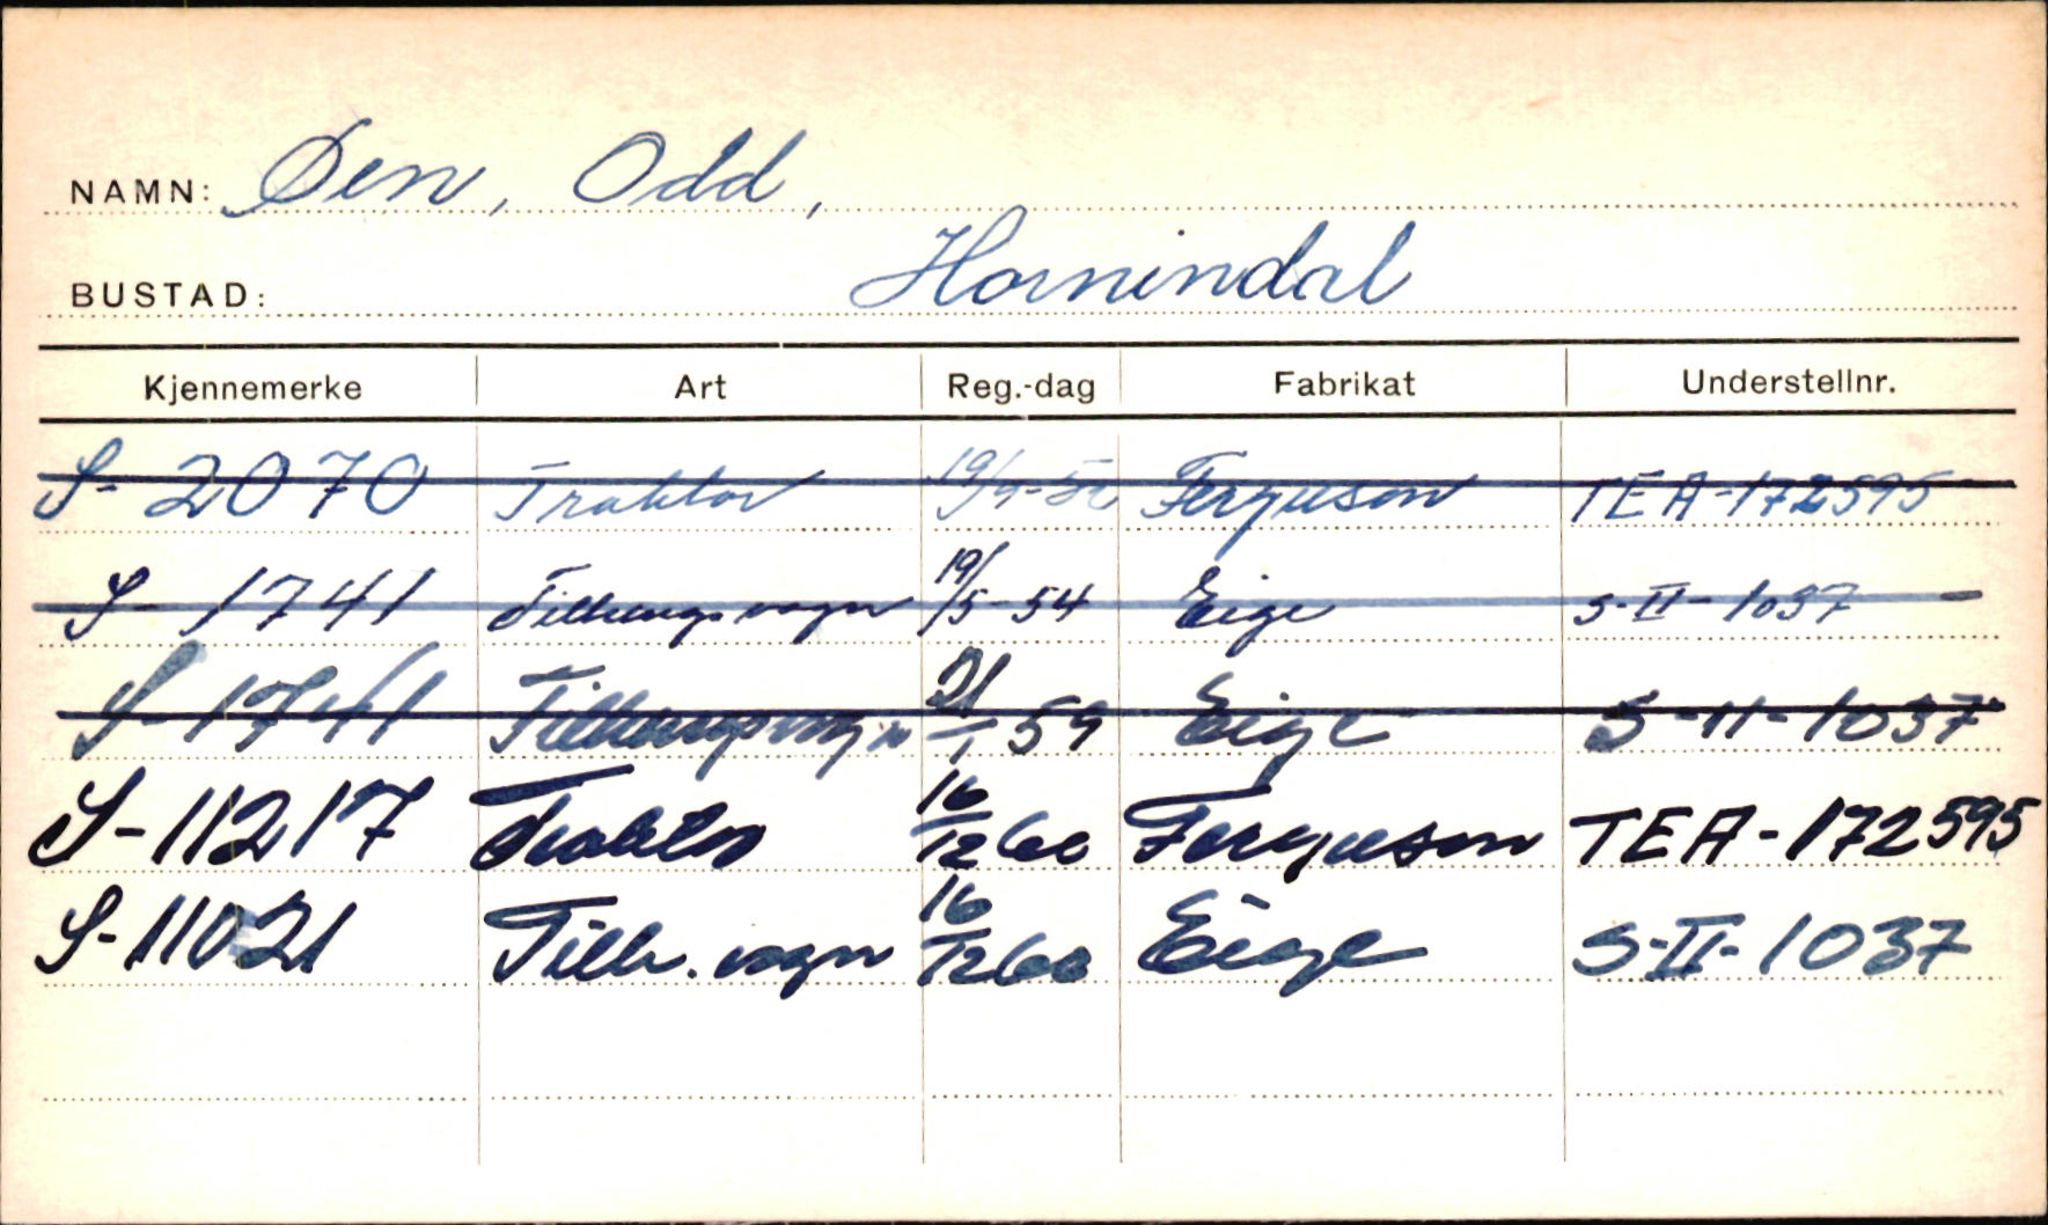 NAMN: Øen, Odd,
BUSTAD: Hornindal
Kjennemerke Art Reg.-dag Fabrikat Understellnr.
S- 2070 Traktor Ferguson TEA-172595
S- 1741 Tilhengsvogn 19/5-54 Eige S-II-1037
S-1741 Tilhengsvogn 21/1 59 Eige S-II-1037
S-11217 Traktor 16/12 60 Ferguson TEA-172595
S-11021 Tilh. vogn 16/12 60 Eige S-II-1037